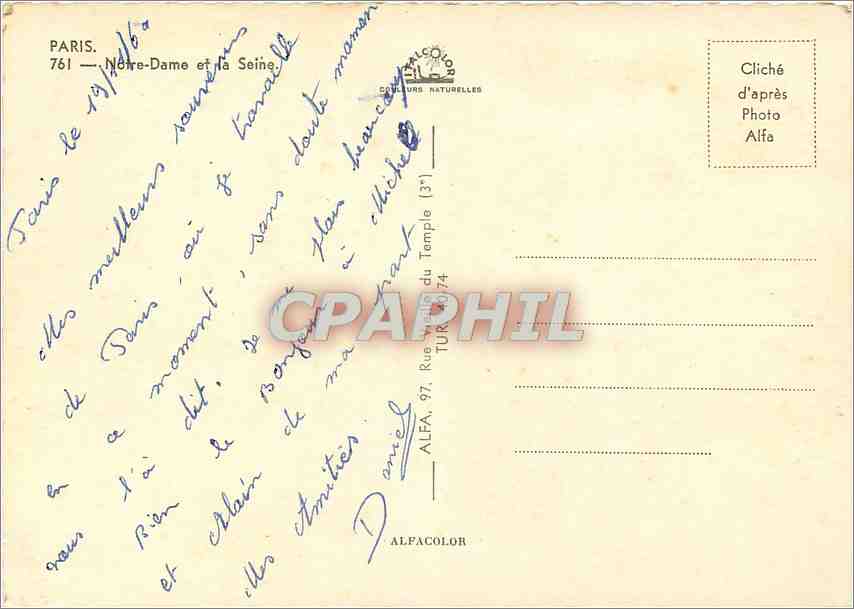 PARIS.
761 — Notre-Dame et la Seine.
ITALCOLOR
COULEURS NATURELLES
Cliché
d'après
Photo
Alfa
Paris le 19/
Mes meilleurs souvenirs
de Paris où je travaille
en ce moment, sans doute maman
vous l'à dit. Je me plais beaucoup
Bien le Bonjour à Michel
et Alain de ma part
Mes Amitiés.
Daniel
ALFA, 97, Rue Vieille du Temple (3e)
TUR. 40-74
ALFACOLOR
CPAPHIL